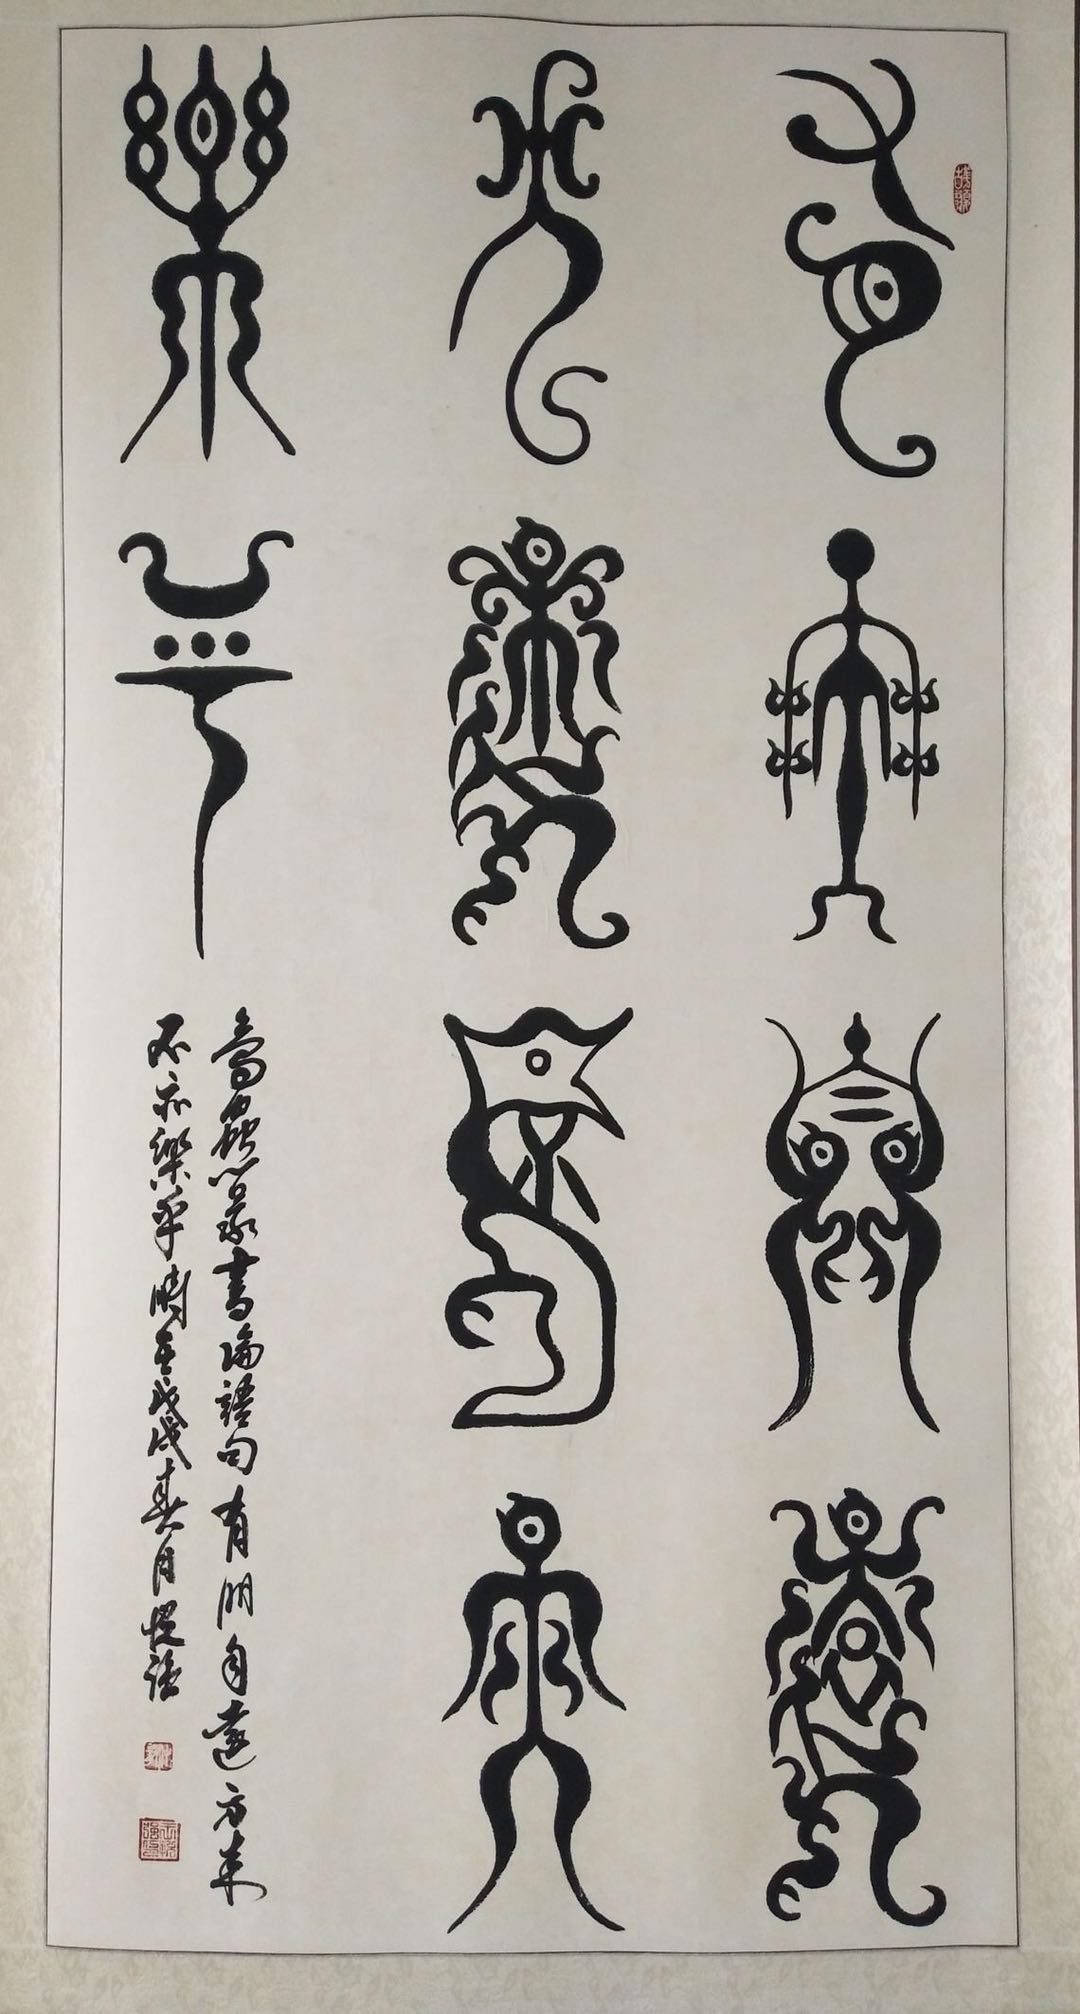 有朋自遠
方來不亦
樂乎
鳥蟲篆書論語句有朋自遠方來
不亦樂乎時在戊戌春月